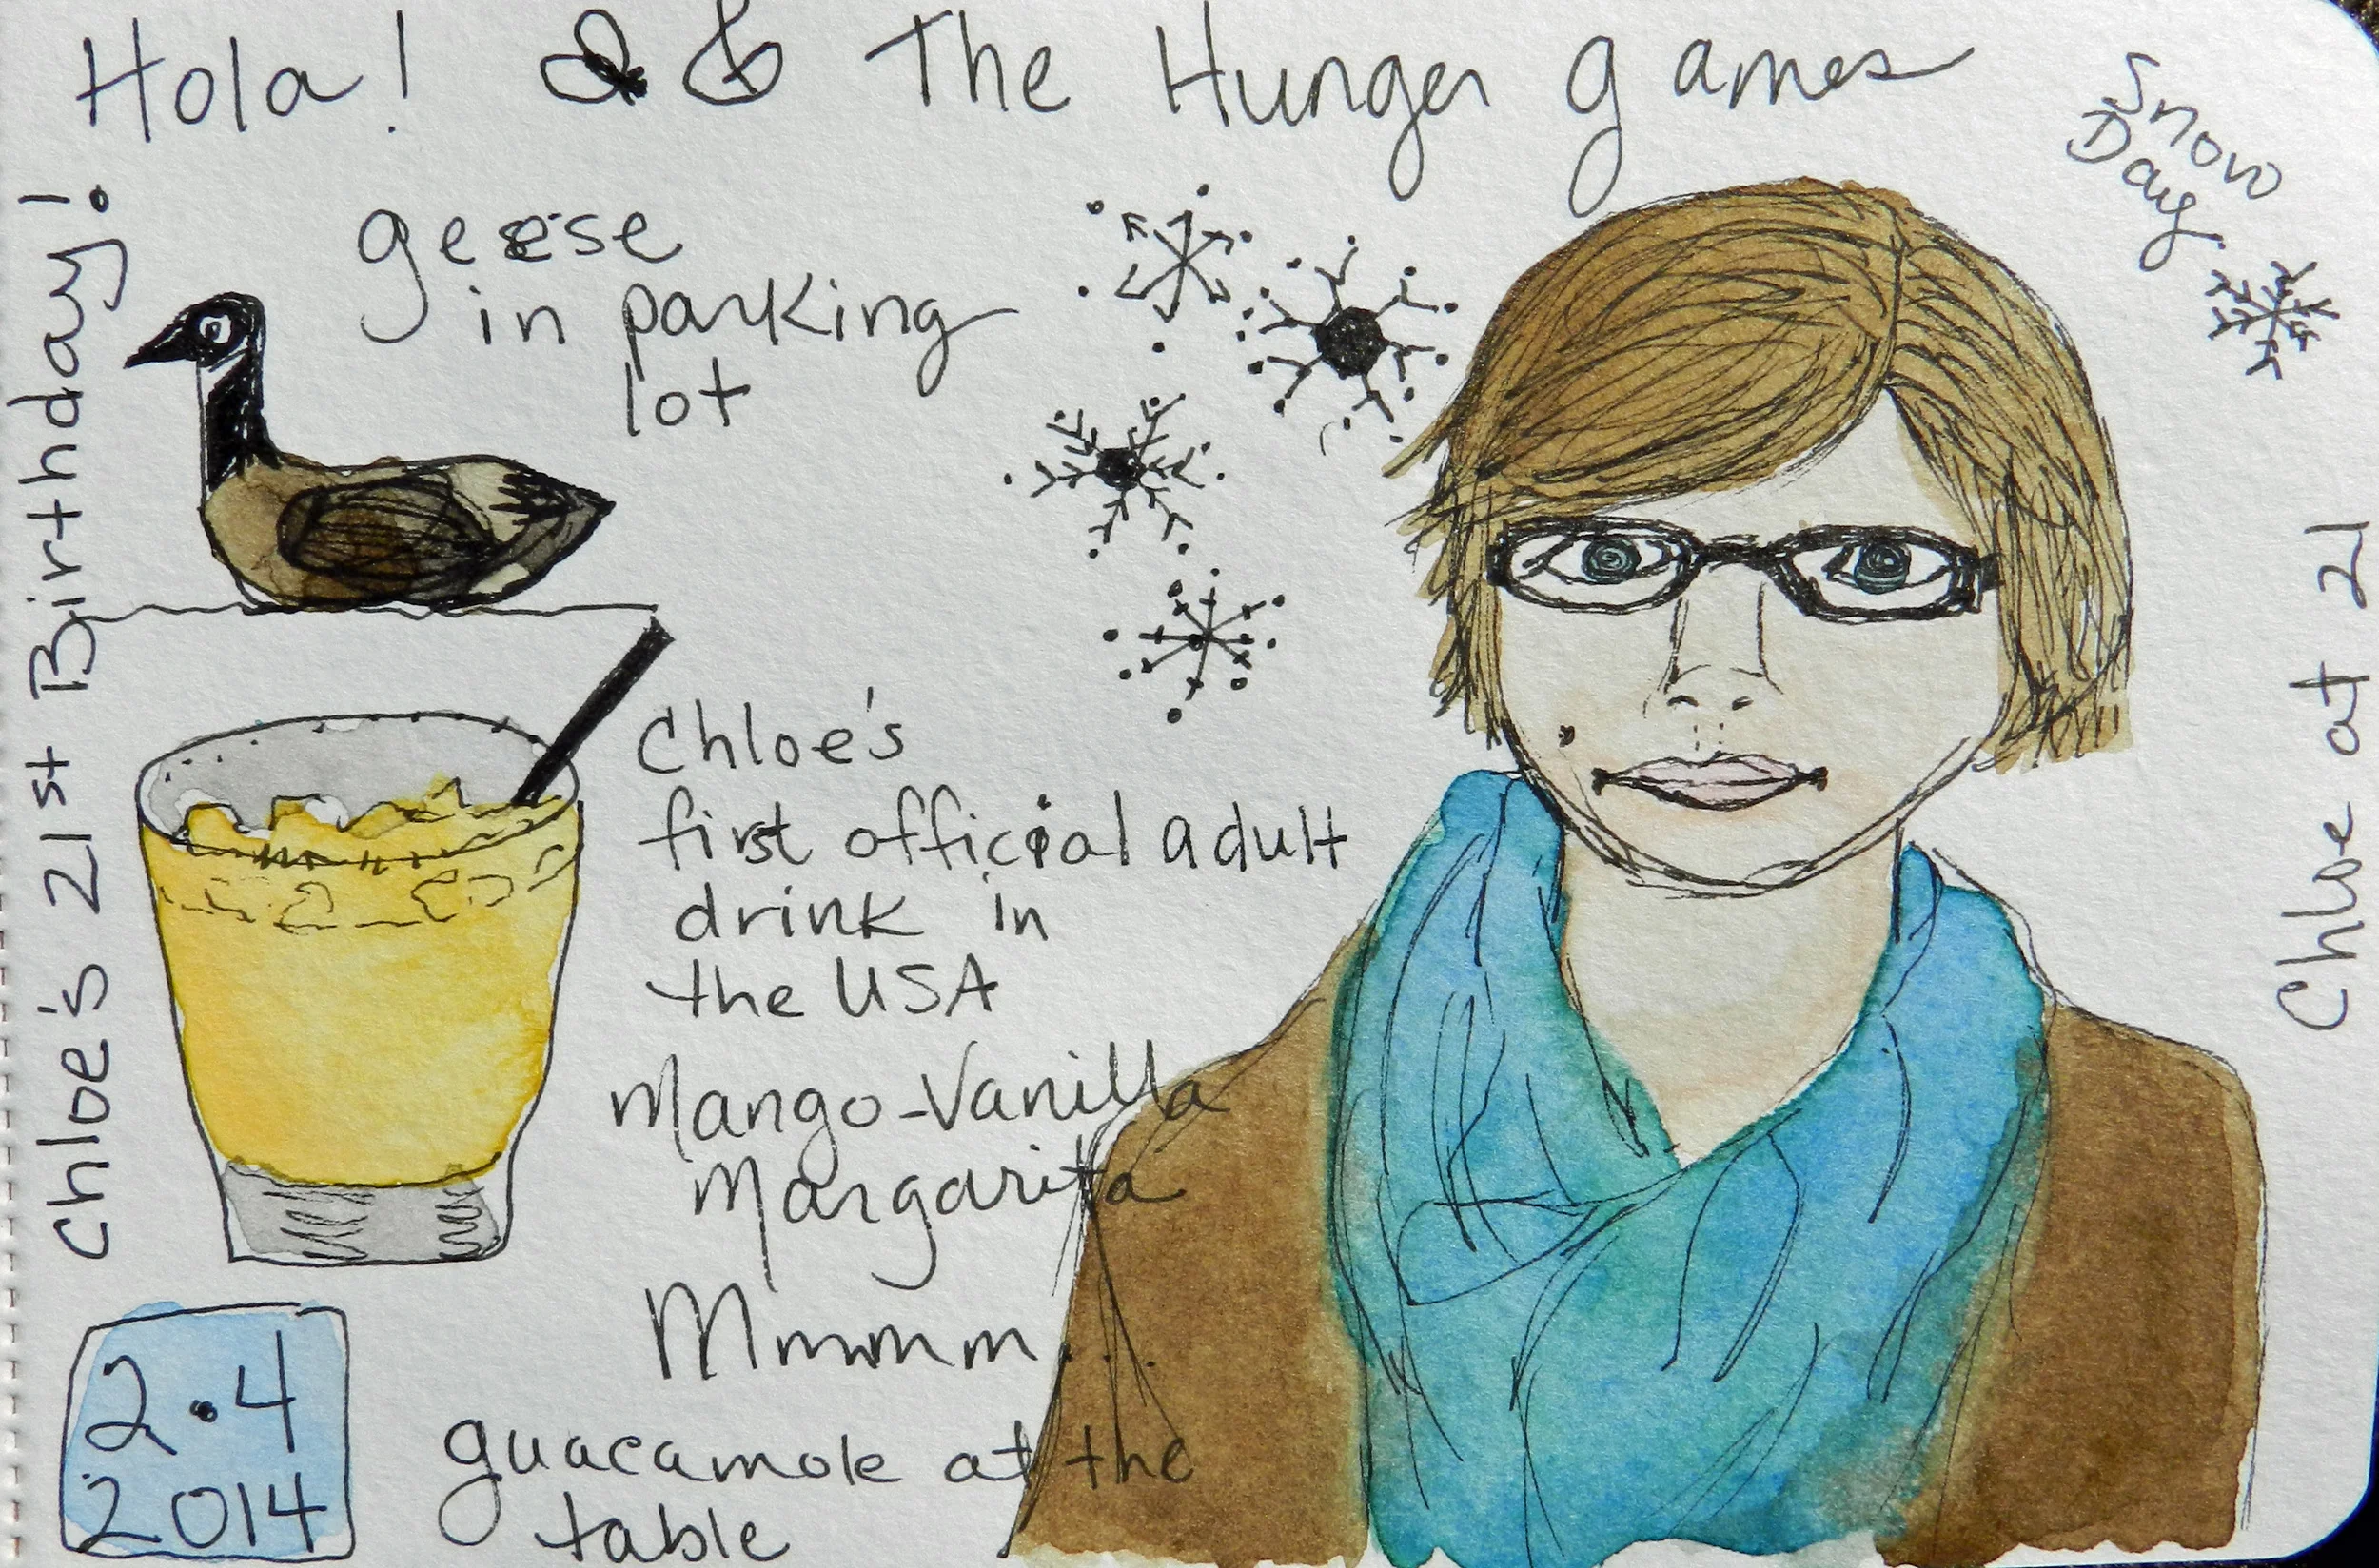 Hola! & The Hunger games
Snow
Day
Chloe's 21st Birthday!
geese
in parking
lot
Chloe's
first official adult
drink in
the USA
Mango-Vanilla
Margarita
Mmmmm...
guacamole at the
table
2•4
2014
Chloe at 21